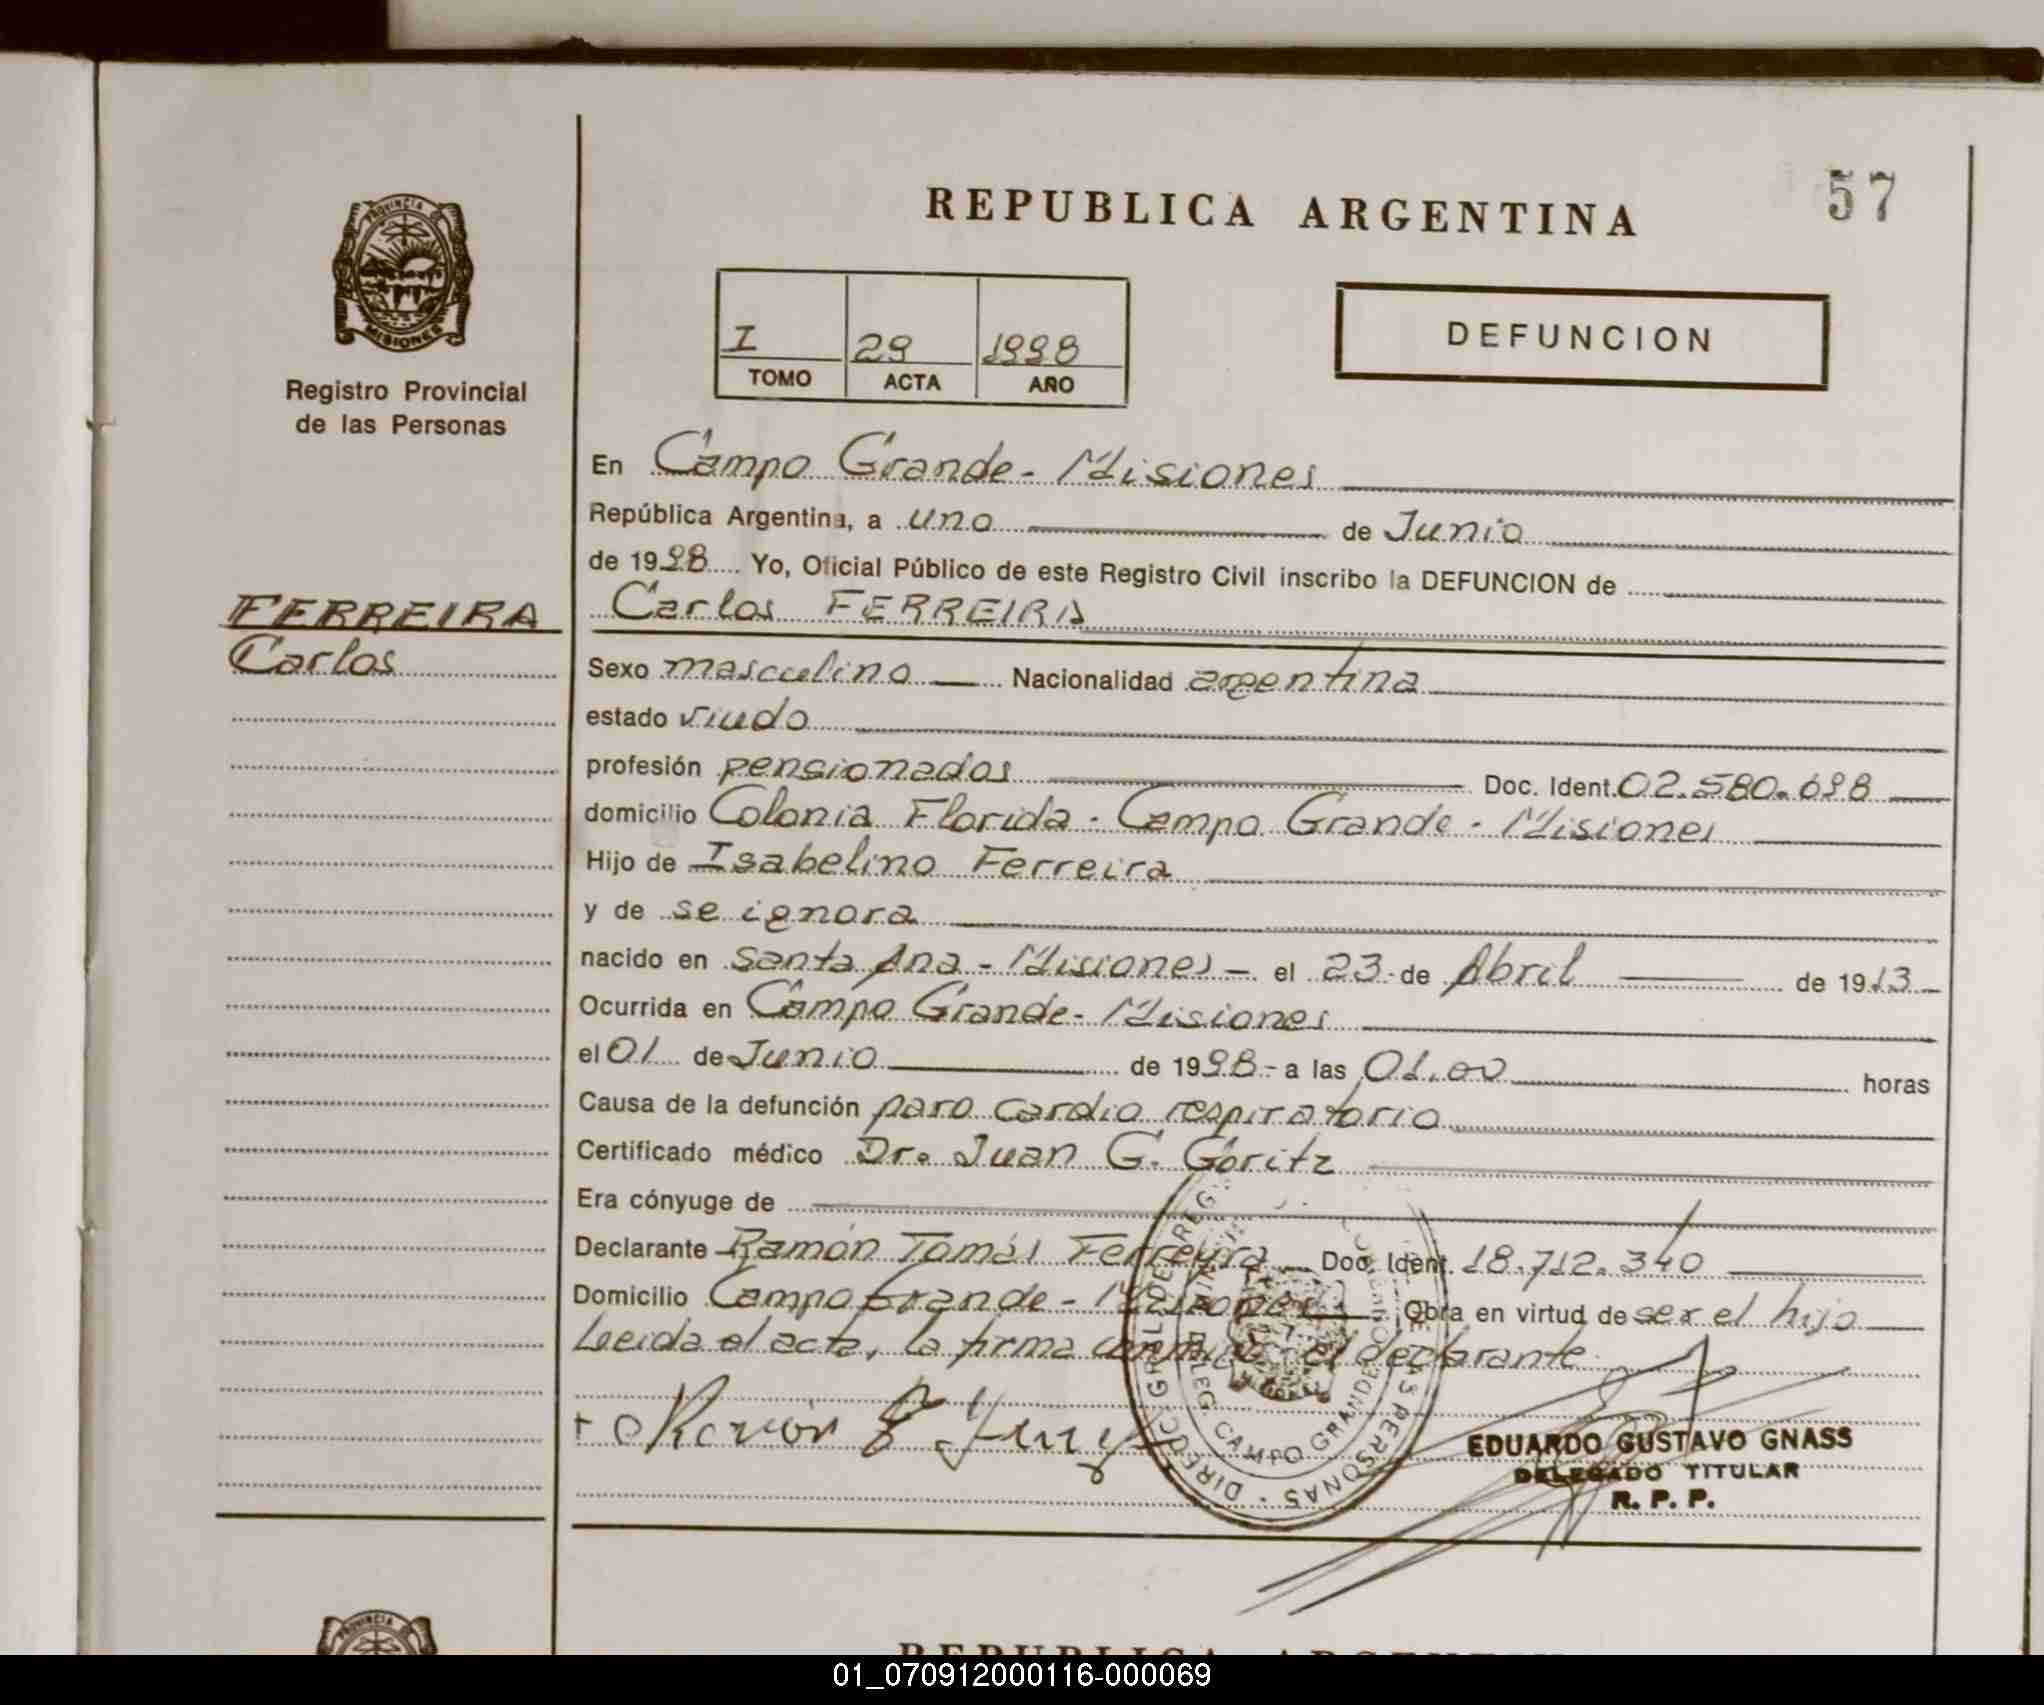 REPUBLICA ARGENTINA
57
PROVINCIA DE
MISIONES
Registro Provincial
de las Personas
I 29 1998
TOMO ACTA AÑO
DEFUNCION
FERREIRA
Carlos
En Campo Grande - Misiones
República Argentina, a uno de Junio
de 1998 Yo, Oficial Público de este Registro Civil inscribo la DEFUNCION de
Carlos FERREIRA
Sexo masculino Nacionalidad argentina
estado viudo
profesión pensionados Doc. Ident. 02.580.698
domicilio Colonia Florida - Campo Grande - Misiones
Hijo de Isabelino Ferreira
y de se ignora
nacido en Santa Ana - Misiones - el 23 - de Abril de 1913
Ocurrida en Campo Grande - Misiones
el 01 de Junio de 1998 - a las 01.00 horas
Causa de la defunción paro cardio respiratorio
Certificado médico Dr. Juan G. Goritz
Era cónyuge de
Declarante Ramón Tomás Ferreyra Doc. Ident. 18.712.340
Domicilio Campo Grande - Misiones Obra en virtud de ser el hijo
Leida el acta, la firma conmigo el declarante
Ramon
DELEG. CAMPO GRANDE
EDUARDO GUSTAVO GNASS
DELEGADO TITULAR
R. P. P.
PROVINCIA
REPUBLICA ARGENTINA
01_070912000116-000069